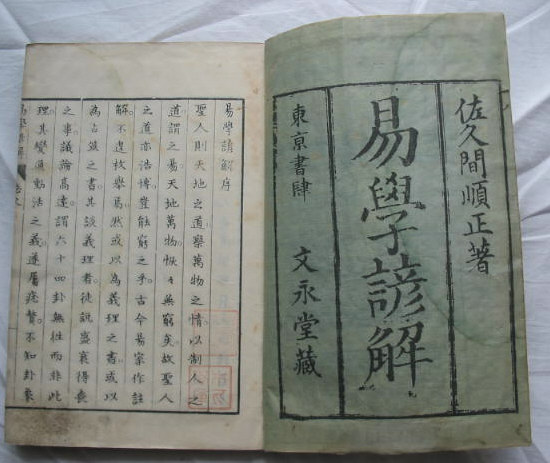 佐久間順正著
易學諺解
東京書肆 文永堂藏
易學諺解序
聖人則天地之道察萬物之情以制人之
道謂之易天地萬物恢々無窮矣故聖人
之道亦浩博豈能窮之乎古今易家作註
解不遑枚擧焉然或以為義理之書或以
為占筮之書其談義理者徒説盛衰得喪
之事議論高遠謂六十四卦無往而非此
理其變通動法之義遂屬疣贅不知卦象